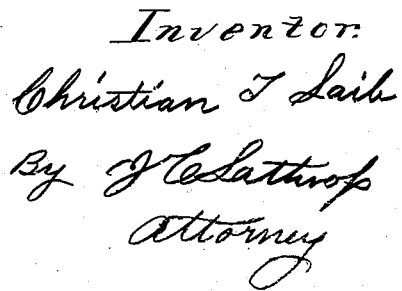 Inventor:
Christian T Saib
By J C Lathrop
Attorney